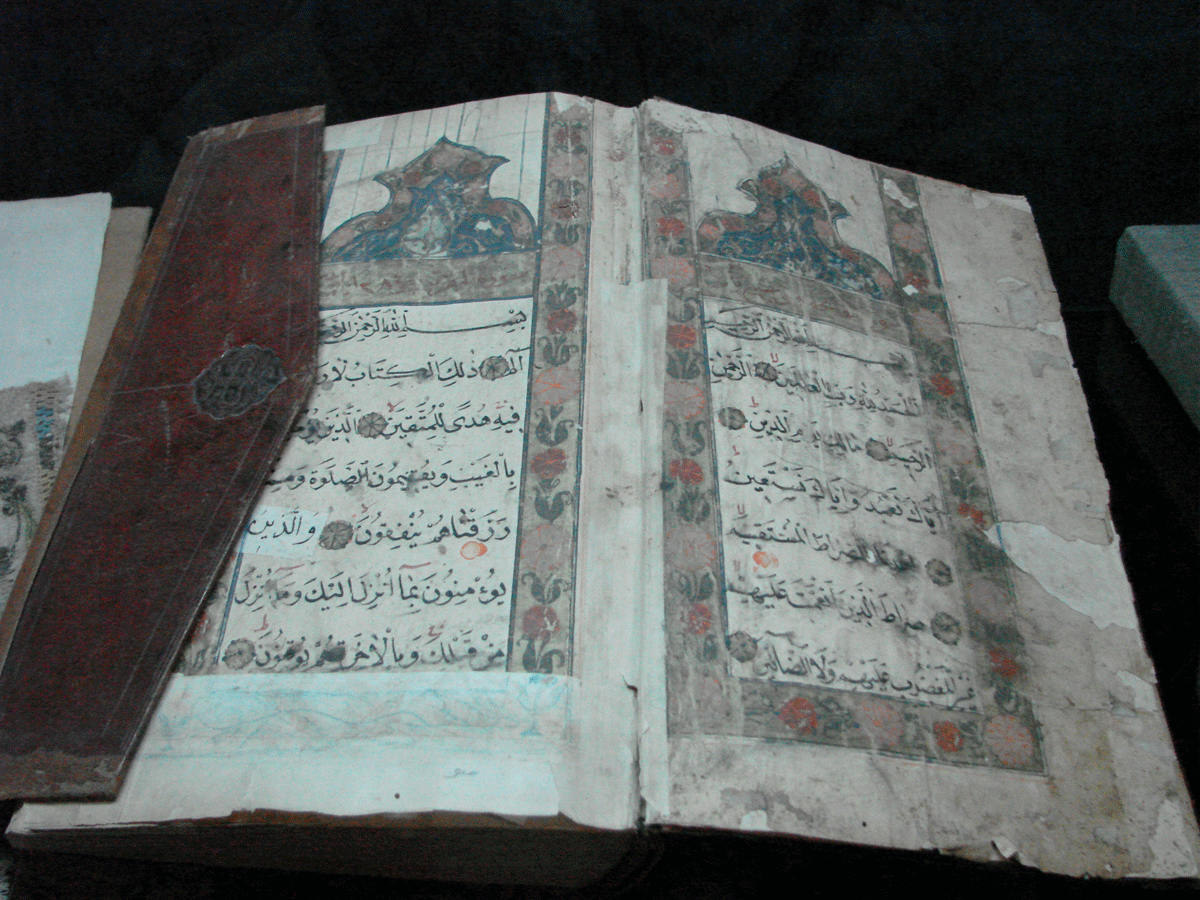 بسم الله الرحمن الرحيم
الحمد لله رب العالمين الرحمن
الرحيم مالك يوم الدين
اياك نعبد واياك نستعين
اهدنا الصراط المستقيم
صراط الذين انعمت عليهم
غير المغضوب عليهم ولا الضالين
بسم الله الرحمن
الٓمٓ ذٰلِكَ الْكِتَابُ لَا
فِيهِ هُدًى لِلْمُتَّقِينَ الَّذِينَ
بِالْغَيْبِ وَيُقِيمُونَ الصَّلٰوةَ
رَزَقْنَاهُمْ يُنْفِقُونَ وَالَّذِينَ
يُوءْمِنُونَ بِمَٓا اُنْزِلَ اِلَيْكَ وَمَٓا اُنْزِلَ
مِنْ قَبْلِكَ وَبِالْاٰخِرَةِ هُمْ يُوقِنُونَ